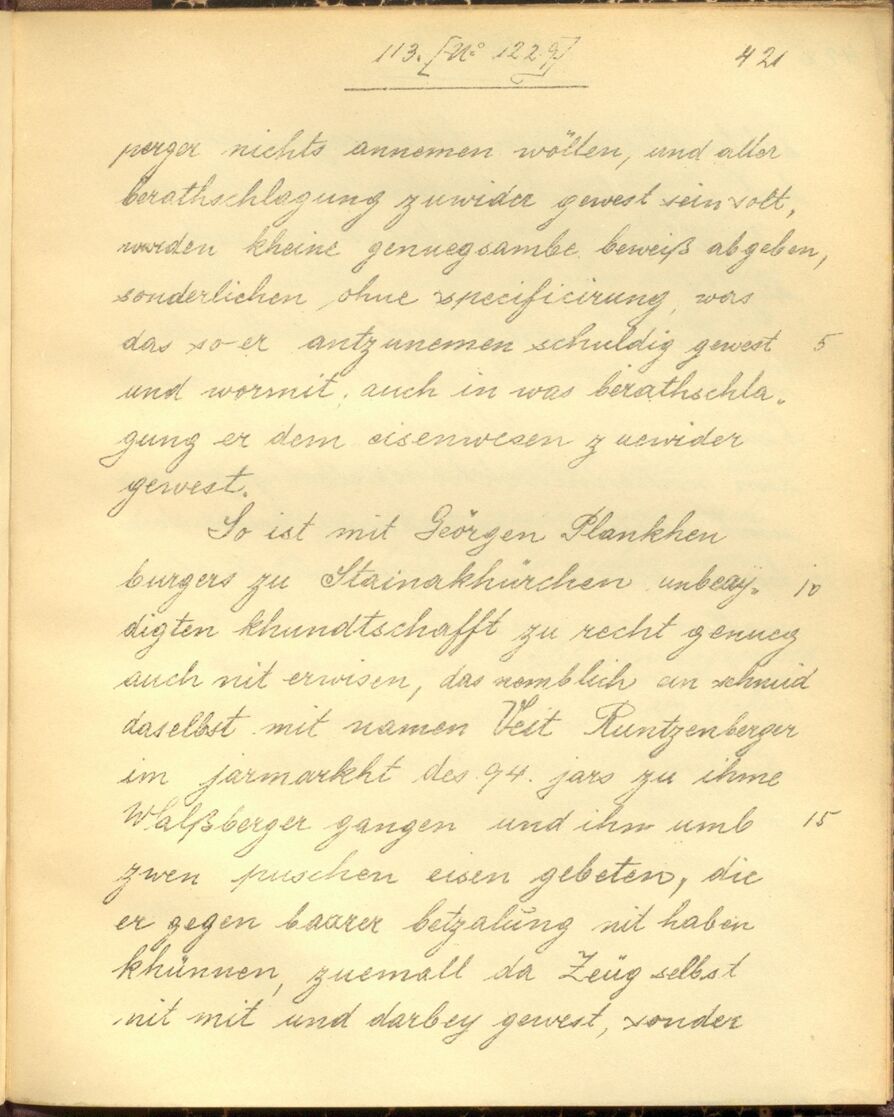 113. [No 1229] 421
perger nichts annemen wöllen, und aller
berathschlagung zuwider gewest sein solt,
wurden kheine genuegsambe beweiß abgeben,
sonderlichen ohne specificirung, was
das so er antzunemen schuldig gewest 5
und wormit, auch in was berathschla„
gung er dem eisenwesen zuewider
gewest.
So ist mit Geörgen Plankhen
burgers zu Stainakhürchen unbeay„ 10
digten khundtschafft zu recht genueg
auch nit erwisen, das nemblich an schmid
daselbst mit namen Veit Runtzenberger
im jarmarkht des 94. jars zu ihme
Walßberger gangen und ihn umb 15
zwen puschen eisen gebeten, die
er gegen baarer betzalung nit haben
khünnen, zuemall da Zeüg selbst
nit mit und darbey gewest, sonder